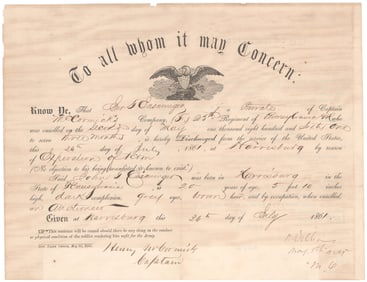 To all whom it may Concern:
Know Ye, That a Private of Captain
McCormick's Company, 25th Regiment of Pennsylvania
was enrolled on the Second day of May one thousand eight hundred and Sixty One
to serve three months is hereby Discharged from the service of the United States,
this 26th day of July, 1861, at Harrisburg by reason
of Expiration of term
(No objection to his being known to exist.)
Said John was born in Harrisburg
State of Pennsylvania is 20 years of age, 5 feet 10 inches
high, dark complexion, grey eyes, brown hair, and by occupation, when enrolled,
Given at Harrisburg this 26th day of July 1861.
This sentence will be erased should there be any thing in the conduct
or physical condition of the soldier rendering him unfit for the Army.
Henry McCormick
Captain